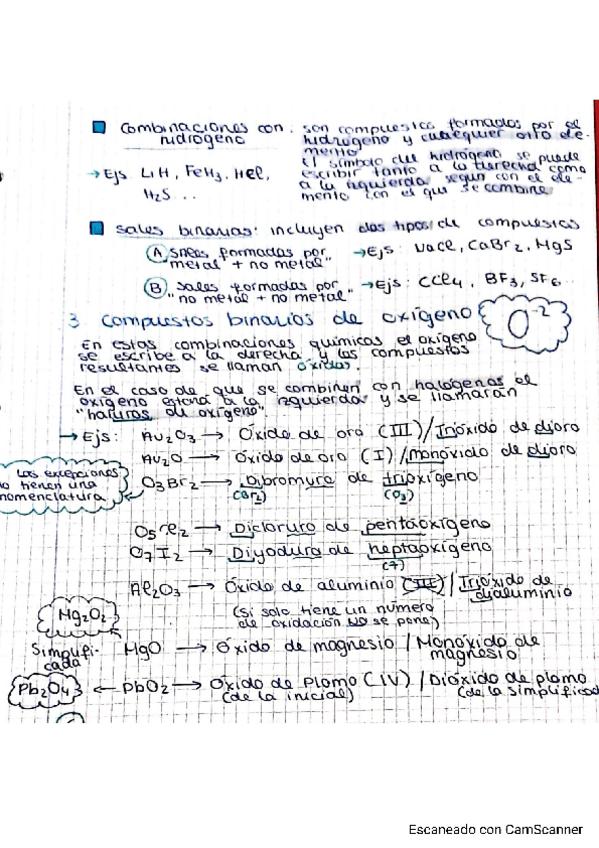 Combinaciones con hidrógeno : son compuestos formados por el hidrógeno y cualquier otro elemento
El símbolo del hidrógeno se puede escribir tanto a la derecha como a la izquierda según con el elemento con el que se combine
→ Ejs LiH, FeH3, HCl, H2S ...
Sales binarias: incluyen dos tipos de compuestos
A sales formadas por "metal + no metal" → Ejs: NaCl, CaBr2, MgS
B sales formadas por "no metal + no metal" → Ejs: CCl4, BF3, SF6...
3 Compuestos binarios de oxígeno
O-2
En estas combinaciones químicas el oxígeno
se escribe a la derecha y los compuestos
resultantes se llaman óxidos.
En el caso de que se combinen con halógenos el
oxígeno estará a la izquierda y se llamarán
"haluros de oxígeno".
→ Ejs: Au2O3 → Óxido de oro (III) / Trióxido de dioro
Au2O → Óxido de oro (I) / monóxido de dioro
Las excepciones
no tienen una
nomenclatura
O3Br2 → Dibromuro de trioxígeno
(Br2) (O3)
O5Cl2 → Dicloruro de pentaoxígeno
O7I2 → Diyoduro de heptaoxígeno
(7)
Al2O3 → Óxido de aluminio (III) / Trióxido de dialuminio
(si solo tiene un numero
de oxidación NO se pone)
Mg2O2
Simplificada
MgO → Óxido de magnesio / Monóxido de magnesio
Pb2O4 ← PbO2 → Óxido de plomo (IV) / Dióxido de plomo
(de la inicial) (de la simplificad
Escaneado con CamScanner